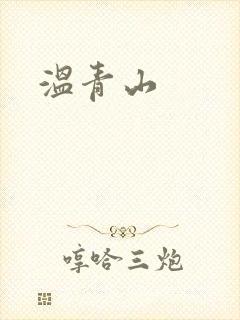 温青山
哼哈三炮